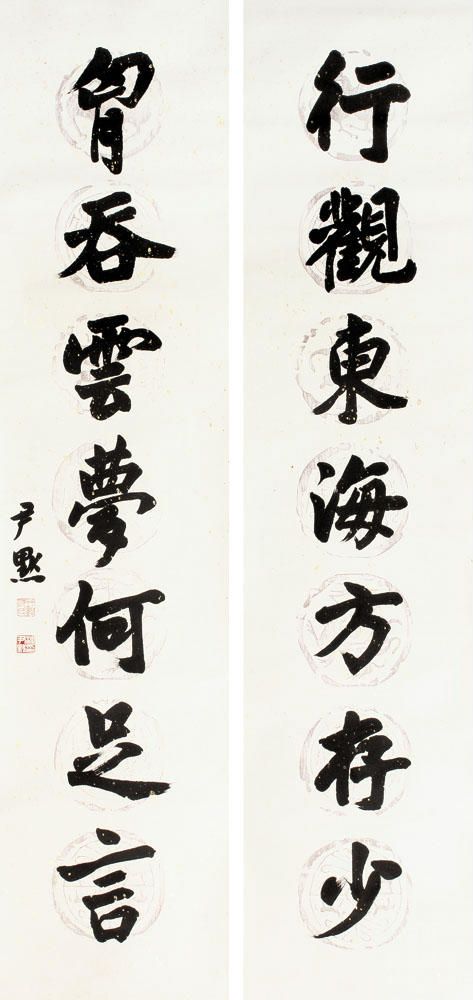 行觀東海方存少
胷吞雲夢何足言
尹默